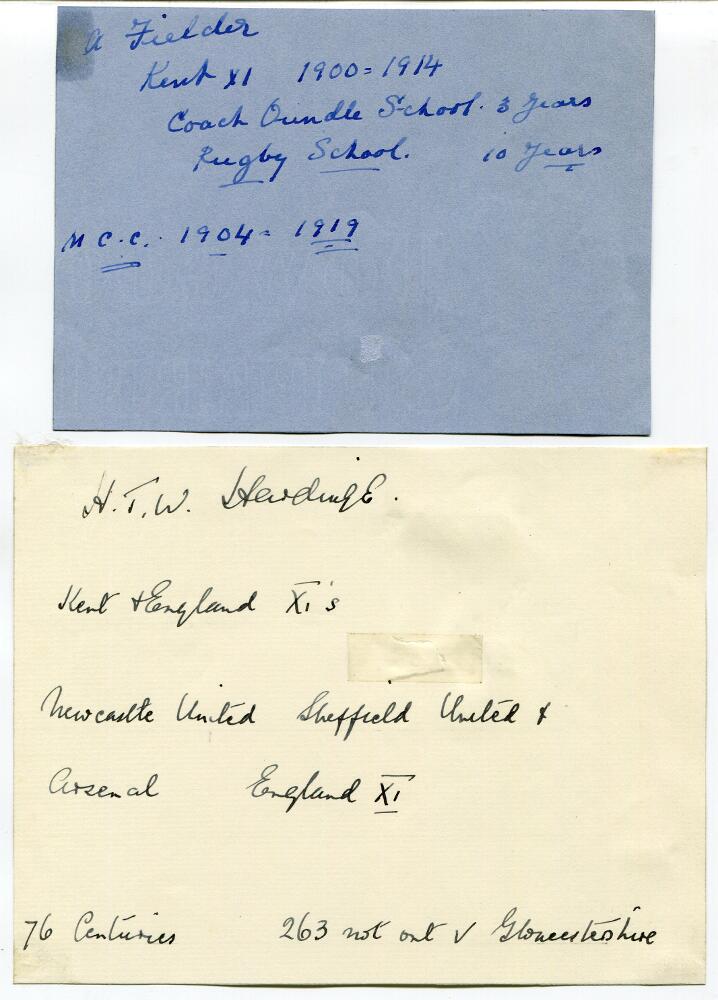 A Fielder
Kent XI 1900=1914
Coach Oundle School. 3 Years
Rugby School. 10 Years
M C.C. 1904= 1919
H.T.W. Hardinge.
Kent & England XI's
Newcastle United Sheffield United &
Arsenal England XI
76 Centuries 263 not out v Gloucestershire